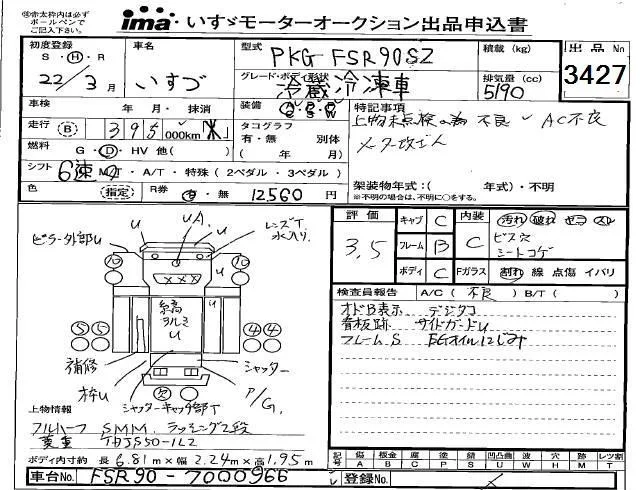 ※赤太枠内は必ず
ボールペンで
ご記入下さい。
ima いすゞモーターオークション出品申込書
初度登録
S・H・R
22/3月
車名
いすゞ
型式
PKG FSR90S2
積載(kg)
出品No
3427
グレード・ボディ形状
冷蔵冷凍車
排気量(cc)
5190
車検
年・月・抹消
装備
特記事項
上物未点検の為 不良 AC不良
走行
B
395
000km
米
タコグラフ
有・無 別体
(年 月)
燃料
G・D・HV 他( )
シフト
6速 MT・A/T・特殊(2ペダル・3ペダル)
架装物年式:( 年式)・不明
※不明の場合は、不明に○をする。
色
(指定)
R券
有・無
12560円
評価
3.5
キャブ C
フレーム B
ボディ C
内装
C
汚れ 破れ
ビス穴
シートコゲ
Fガラス
割れ 線 点傷 イバリ
検査員報告
A/C(不良)B/T( )
オドB表示 デジタコ
看板跡 サイドガードU
フレームS EGオイルにじみ
ピラー外部U
U
UA
U
U
レンズT
水入り
10
10
XXX
U
U
縞高
U
5 5
4 4
補修
枠U
シャッター
シャッターキャッチ部T
P/G
欠
上物情報
フルハーフ SMM ラッシング2段
菱重 TDJS50-1L2
ボディ内寸約 長6.81m×幅2.24m×高1.95m
記号
傷 A
板金 B
腐 C
塗 P
錆 S
凹凸曲 U
波 W
穴 H
跡 M
レツ割 T
車台No.
FSR90-7000966
登録No.